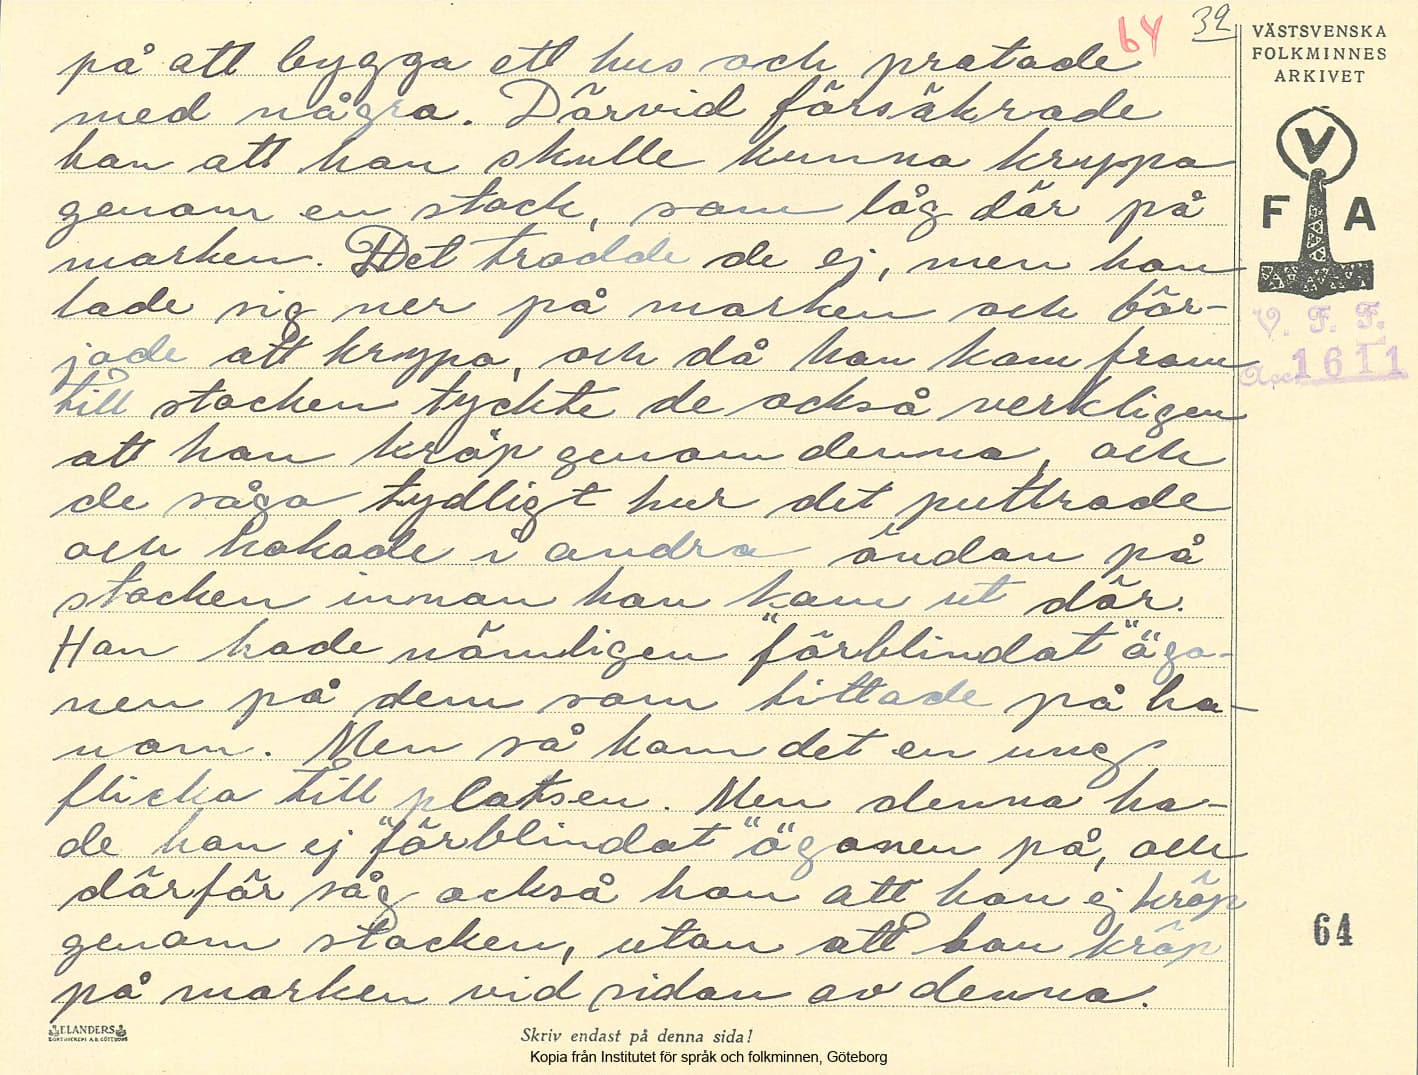 64 39
på att bygga ett hus och pratade
med några. Därvid försäkrade
han att han skulle kunna krypa
genom en stock, som låg där på
marken. Det trodde de ej, men han
lade sig ner på marken och bör-
jade att krypa, och då han kom fram
till stocken tyckte de också verkligen
att han kröp genom denna, och
de såga tydligt hur det puttrade
och kokade i andra ändan på
stocken innan han kom ut där.
Han hade nämligen "förblindat" ögo-
nen på dem som tittade på ho-
nom. Men så kom det en ung
flicka till platsen. Men denna ha-
de han ej "förblindat" ögonen på, och
därför såg också hon att han ej kröp
genom stocken, utan att han kröp
på marken vid sidan av denna.
VÄSTSVENSKA
FOLKMINNES
ARKIVET
V
F A
V. F. F.
Acc. 1611
64
ELANDERS
BOKTRYCKERI A.B. GÖTEBORG
Skriv endast på denna sida!
Kopia från Institutet för språk och folkminnen, Göteborg